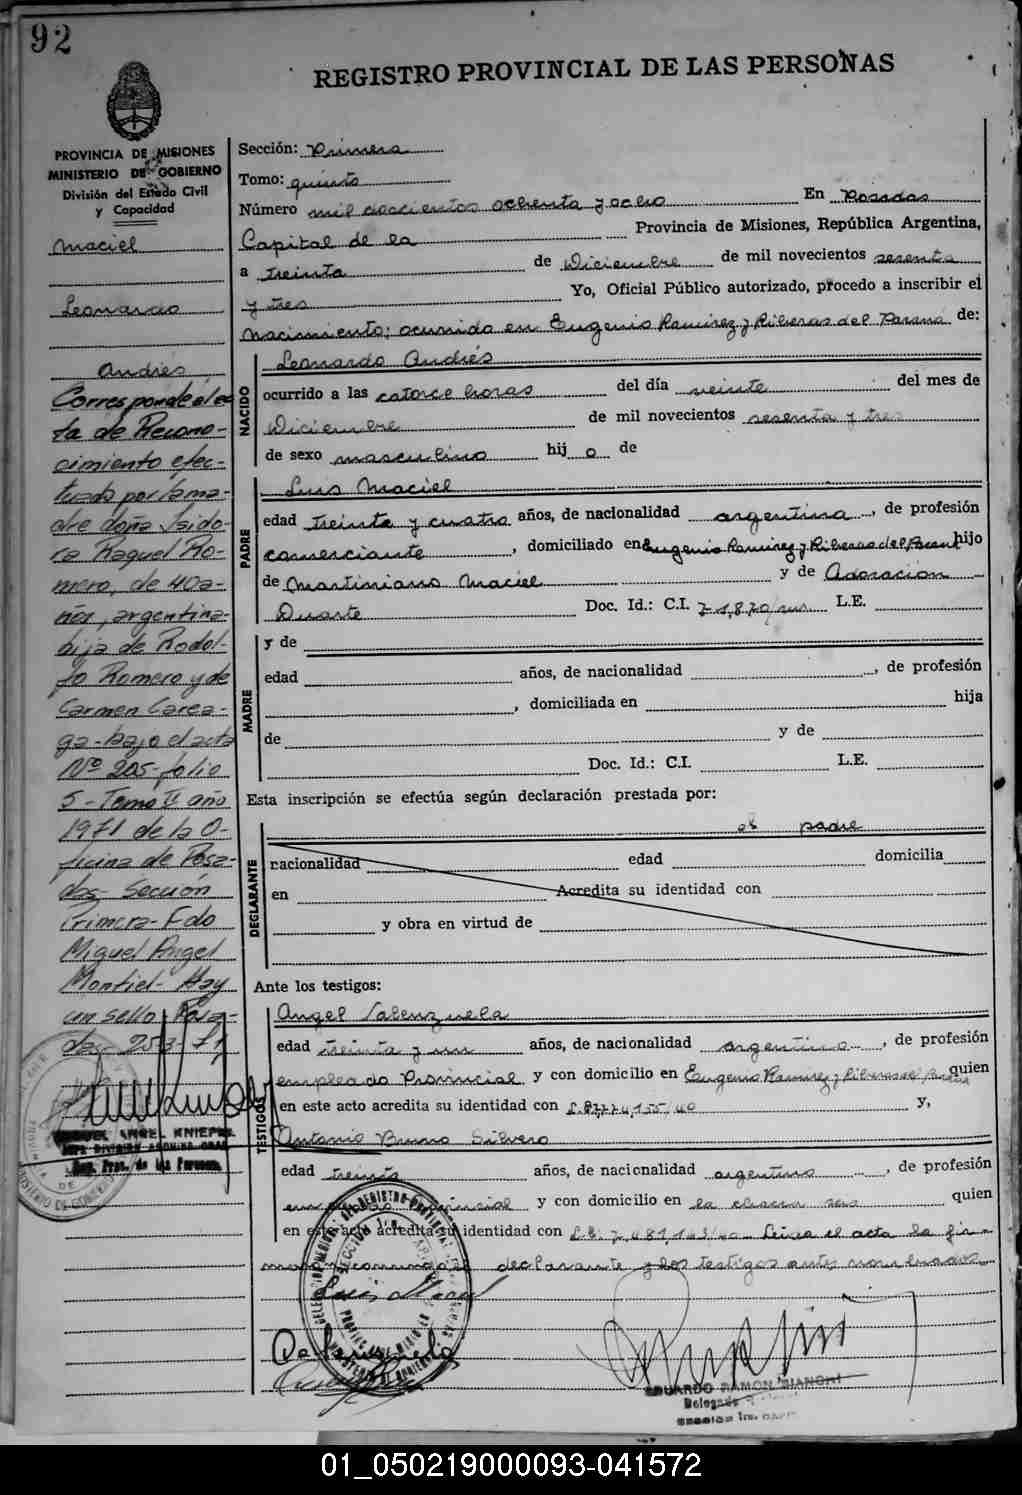 92
REGISTRO PROVINCIAL DE LAS PERSONAS
PROVINCIA DE MISIONES
MINISTERIO DE GOBIERNO
División del Estado Civil
y Capacidad
Maciel
Leonardo
Andrés
Corresponde al ac
ta de Recono-
cimiento efec-
tuado por la ma-
dre doña Isido-
ra Raquel Ro-
mero, de 40 a-
ños, argentina-
hija de Rodol-
fo Romero y de
Carmen Carea-
ga- bajo el acta
Nº 205- folio
5- Tomo II año
1971 de la O-
ficina de Posa-
das- Sección
Primera- Fdo
Miguel Angel
Montiel- Hay
un sello Posa-
das- 25-3-71
MIGUEL ANGEL KNIEPS
Reg. Prov. de las Personas
Sección: Primera
Tomo: quinto
Número mil doscientos ochenta y ocho En Posadas
Capital de la Provincia de Misiones, República Argentina,
a treinta de Diciembre de mil novecientos sesenta
y tres Yo, Oficial Público autorizado, procedo a inscribir el
nacimiento; ocurrido en Eugenio Ramirez y Riberas del Paraná de:
NACIDO
Leonardo Andrés
ocurrido a las catorce horas del día veinte del mes de
Diciembre de mil novecientos sesenta y tres
de sexo masculino hij o de
PADRE
Luis Maciel
edad treinta y cuatro años, de nacionalidad argentina, de profesión
comerciante, domiciliado en Eugenio Ramirez y Riberas del Paraná hijo
de Martiniano Maciel y de Adoración
Duarte Doc. Id.: C.I. 71,870 L.E.
MADRE
y de
edad años, de nacionalidad , de profesión
, domiciliada en hija
de y de
Doc. Id.: C.I. L.E.
Esta inscripción se efectúa según declaración prestada por:
DECLARANTE
el padre
nacionalidad edad domicilia
en Acredita su identidad con
y obra en virtud de
Ante los testigos:
TESTIGOS
Angel Valenzuela
edad treinta y un años, de nacionalidad argentino, de profesión
empleado Provincial y con domicilio en Eugenio Ramirez y Riberas del Paraná quien
en este acto acredita su identidad con y,
Antonio Bruno Silvero
edad treinta años, de nacionalidad argentino, de profesión
empleado Provincial y con domicilio en la chacra seis quien
en este acto acredita su identidad con Leida el acta la fir-
man conmigo el declarante y los testigos antes nombrados
Luis Maciel
EDUARDO RAMON BIANCHI
Delegado
01_050219000093-041572